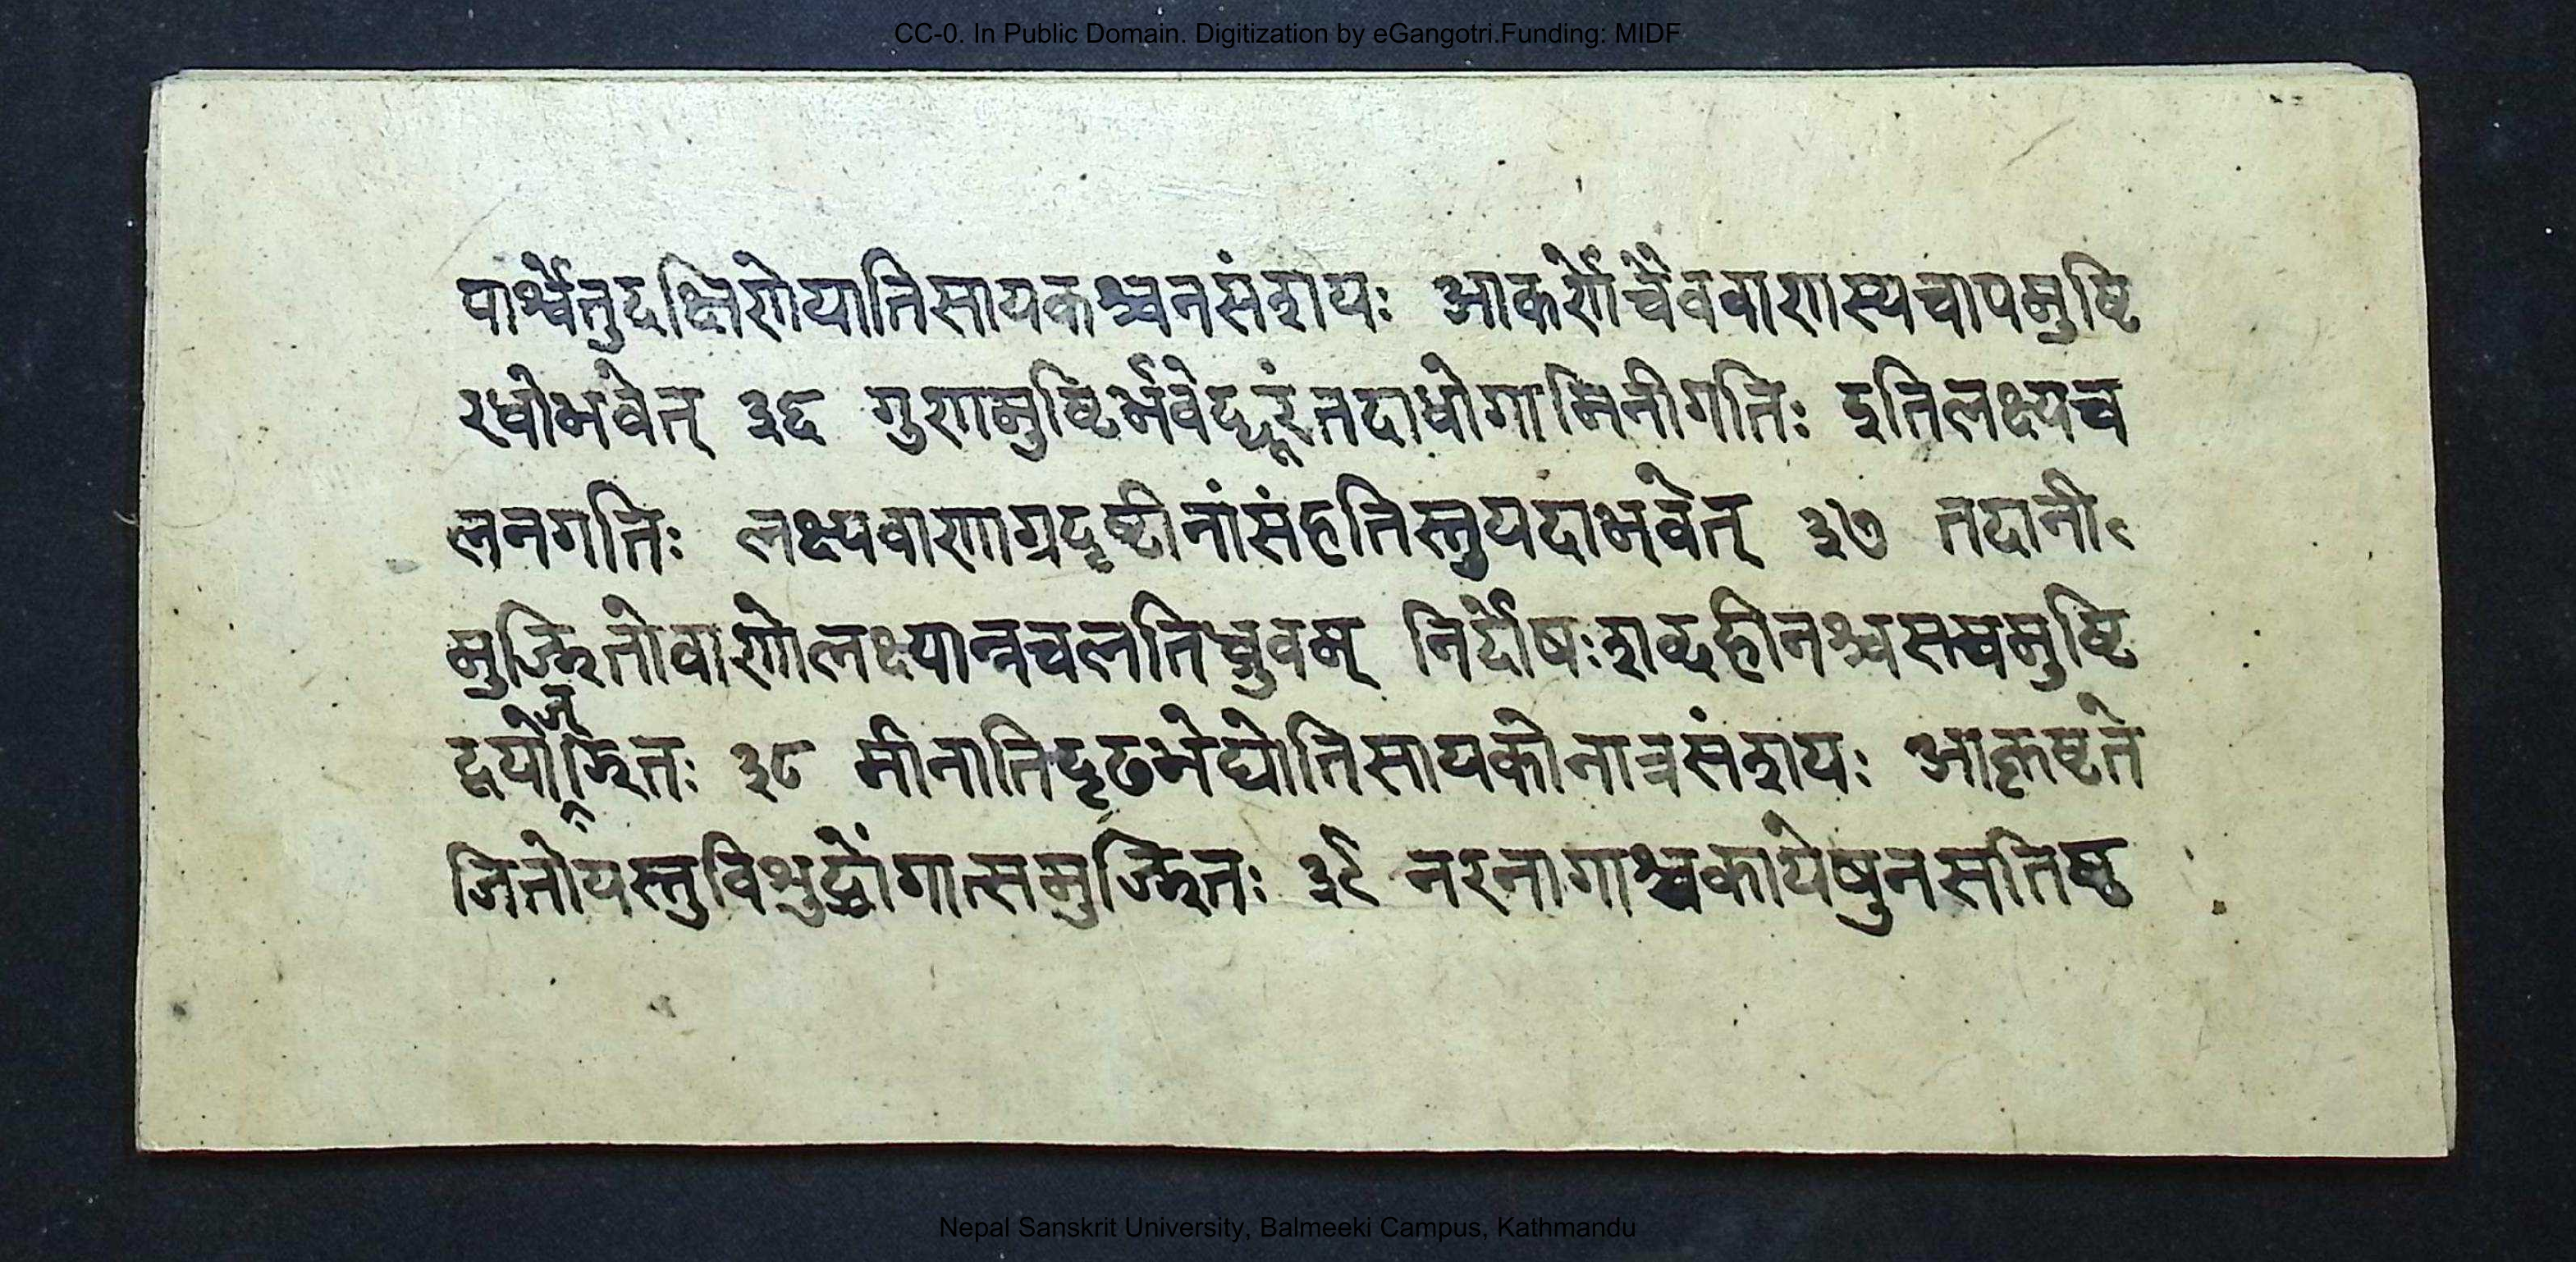 CC-0. In Public Domain. Digitization by eGangotri.Funding: MIDF
पार्श्वेतुदक्षिणेयातिसायकश्चनसंशयः आकर्णेचैववाणस्यचापमुष्टि
रधोभवेत् ३६ गुणमुष्टिर्भवेद्दूरंतदाधोगामिनीगतिः इतिलक्ष्यच
लनगतिः लक्ष्यवाणाग्रदृष्टीनांसंहतिस्तुयदाभवेत् ३७ तदानी
मुज्झितोवाणोलक्ष्यान्नचलतिध्रुवम् निर्दोषःशब्दहीनश्चसममुष्टि
द्वयोज्झितः ३८ भीनातिदृढभेद्योतिसायकोनात्रसंशयः आकृष्टते
जितोयस्तुविशुद्धोंगात्समुज्झितः ३९ नरनागाश्वकायेषुनसतिष्ठ
Nepal Sanskrit University, Balmeeki Campus, Kathmandu